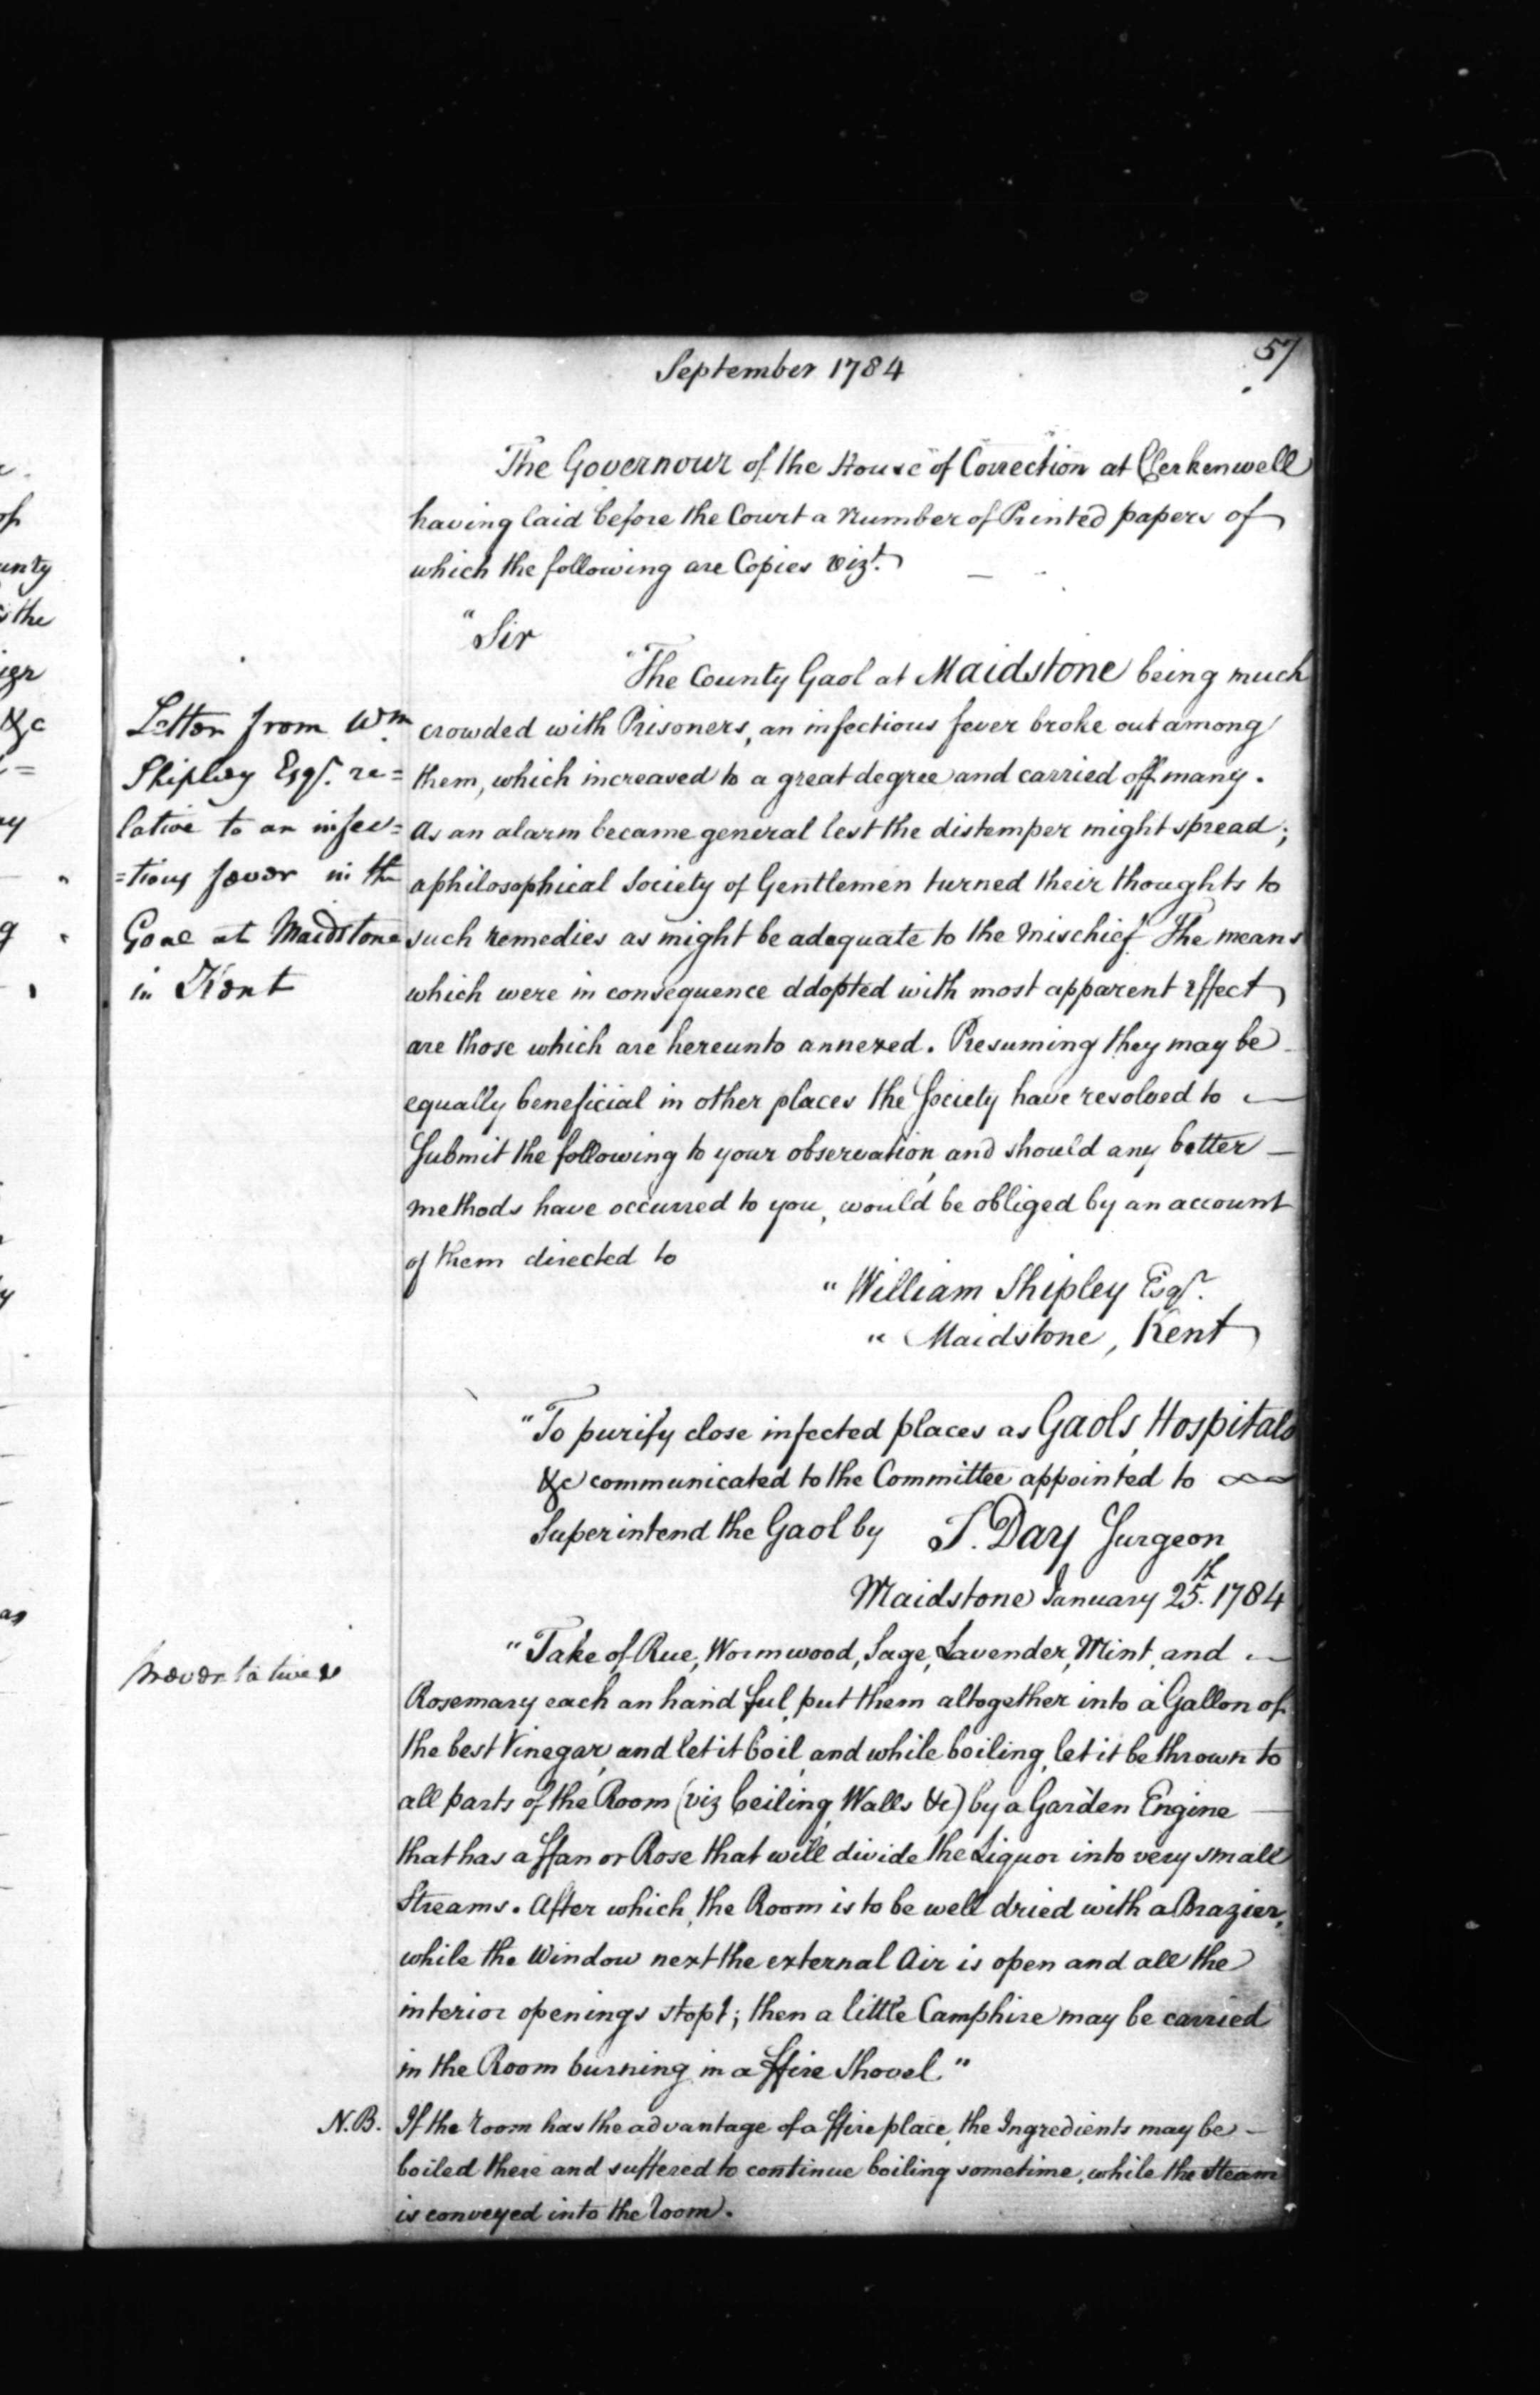 57
September 1784
The Governour of the House of Correction at Clerkenwell
having laid before the Court a Number of Printed papers of
which the following are Copies vizt.
"Sir
"The County Gaol at Maidstone being much
crowded with Prisoners, an infectious fever broke out among
them, which increased to a great degree and carried off many.
As an alarm became general lest the distemper might spread;
a philosophical Society of Gentlemen turned their thoughts to
such remedies as might be adequate to the mischief. The means
which were in consequence ddopted with most apparent Effect
are those which are hereunto annexed. Presuming they may be
equally beneficial in other places the Society have resolved to
Submit the following to your observation, and should any better
methods have occurred to you, would be obliged by an account
of them directed to
"William Shipley Esqr.
"Maidstone, Kent
Letter from Wm.
Shipley Esqr. re=
lative to an infec=
=tious fever in the
Goal at Maidstone
in Kent
"To purify close infected places as Gaols, Hospitals
&c communicated to the Committee appointed to
Superintend the Gaol by T. Day Surgeon
Maidstone January 25th. 1784
Preventatives
"Take of Rue, Wormwood, Sage, Lavender, Mint, and
Rosemary each an hand ful, put them altogether into a Gallon of
the best Vinegar, and let it boil, and while boiling, let it be thrown to
all parts of the Room (viz Ceiling, Walls &c) by a Garden Engine
that has a ffan or Rose that will divide the Liquor into very small
Streams. After which, the Room is to be well dried with a Brazier,
while the Window next the external Air is open and all the
interior openings stopt; then a little Camphire may be carried
in the Room burning in a ffire Shovel."
N.B. If the room has the advantage of a ffire place, the Ingredients may be
boiled there and suffered to continue boiling sometime, while the Steam
is conveyed into the room.